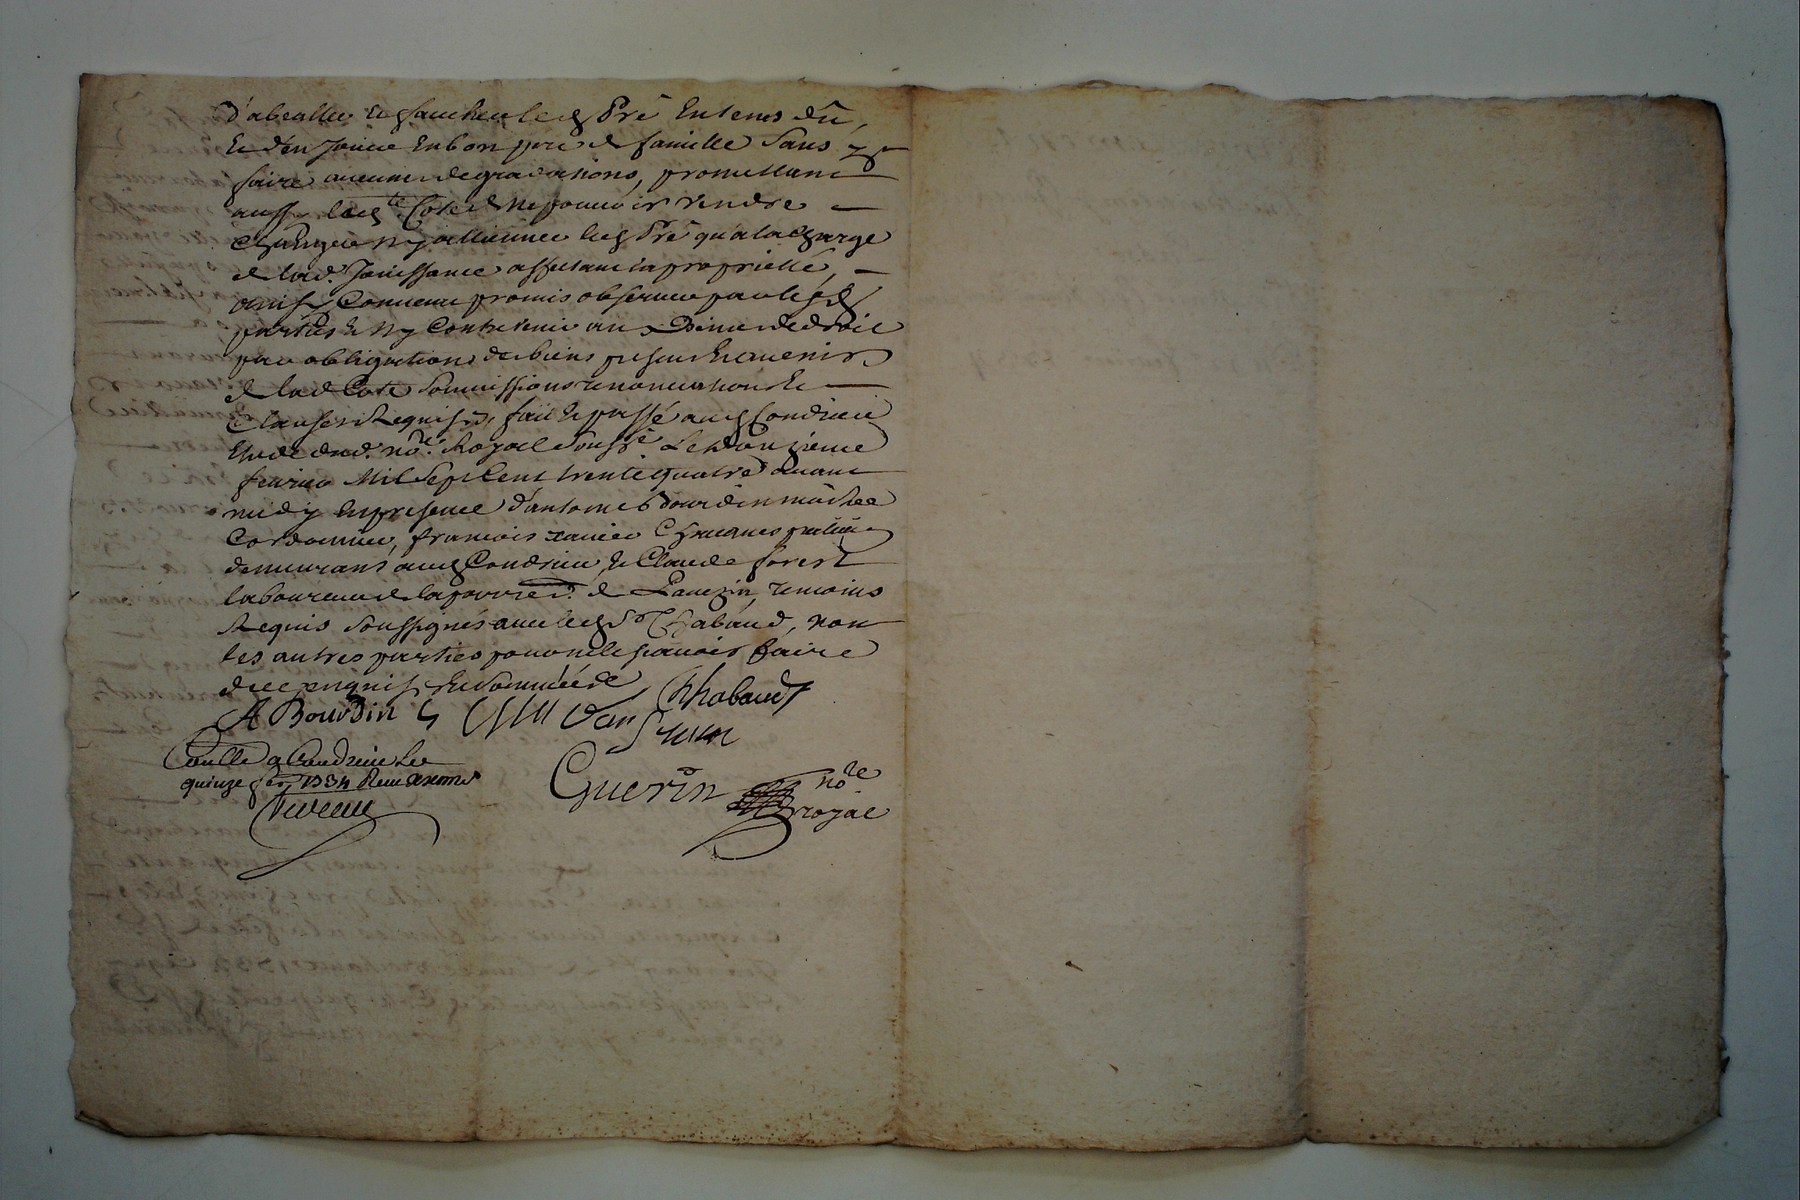 d'abealler et faucher led. Pré en tems dû,
Et d'en Jouire en bon pere de famille Sans
faire aucunes degradations, promettant
aussy lad.te Coste de ne pouvoir vendre
Changer ny allienner led. Pré qu'a la charge
de lad. Jouissance affectant la proprietté,
ainsy Convenu promis observer par lesd.
parties et ny Contrevenir aux peine de droit
par obligations de biens presens et avenirs
de lad. Coste Soumissions renonciations Et
Clauses Requises, fait et passé aud. Condrieu
Etude dud. no.re Royal Soussé. Le
fevrier Mil Sept Cent trente quatre avant
midy En presence d'antoine Bourdin maître
Cordonnier, francois xavier praticien
demeurans aud. Condrieu, et Claude forest
laboureur de la parroe. de Pavezin, temoins
Requis Soussignés avec led. Sr Chabaud, non
les autres parties pour ne le scavoir faire
de ce enquis et sommée de
A Bourdin Chabaud
Conllé a Condrieu Le
quinze fer. 1734 Reçu
Guerin no.re
royal